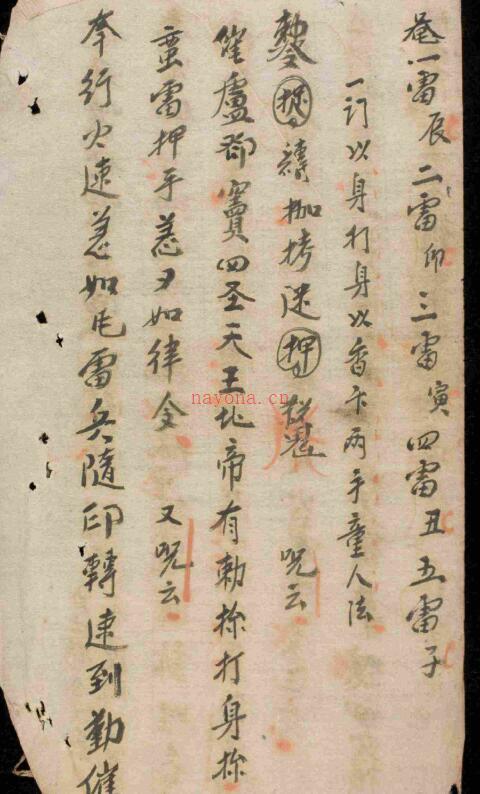 一雷辰二雷卯三雷寅四雷丑五雷子
一訂以身打身以香乍兩手童人法
枷拷 押 咒云
催盧鄧竇四圣天王北帝有勅捺打身捺
蛮雷押手急如律令 又咒云
奉行火速急如電雷兵隨印轉速到勤催
nayona.cn